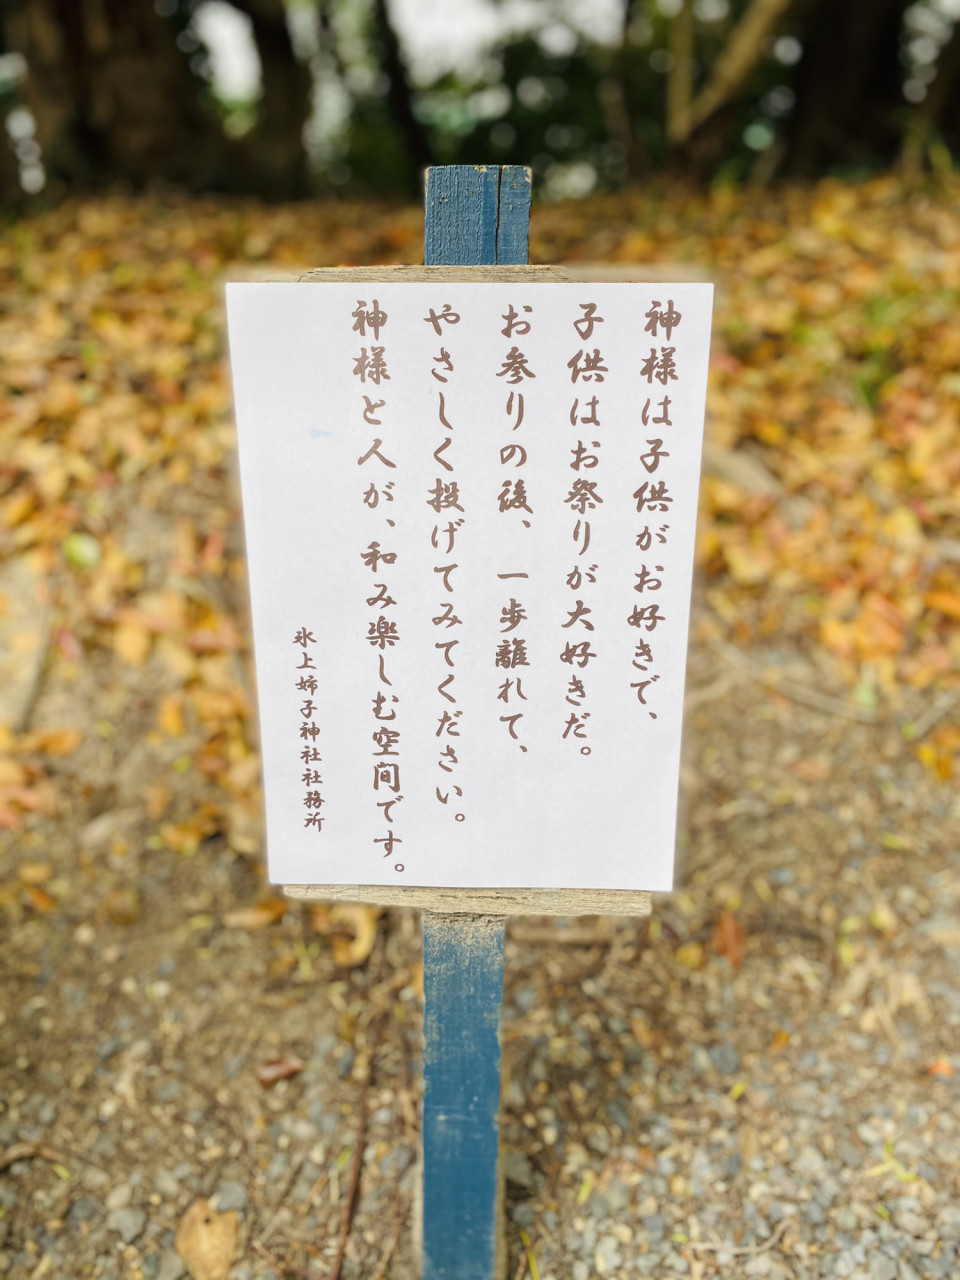 神様は子供がお好きで、
子供はお祭りが大好きだ。
お参りの後、一歩離れて、
やさしく投げてみてください。
神様と人が、和み楽しむ空間です。
氷上姉子神社社務所